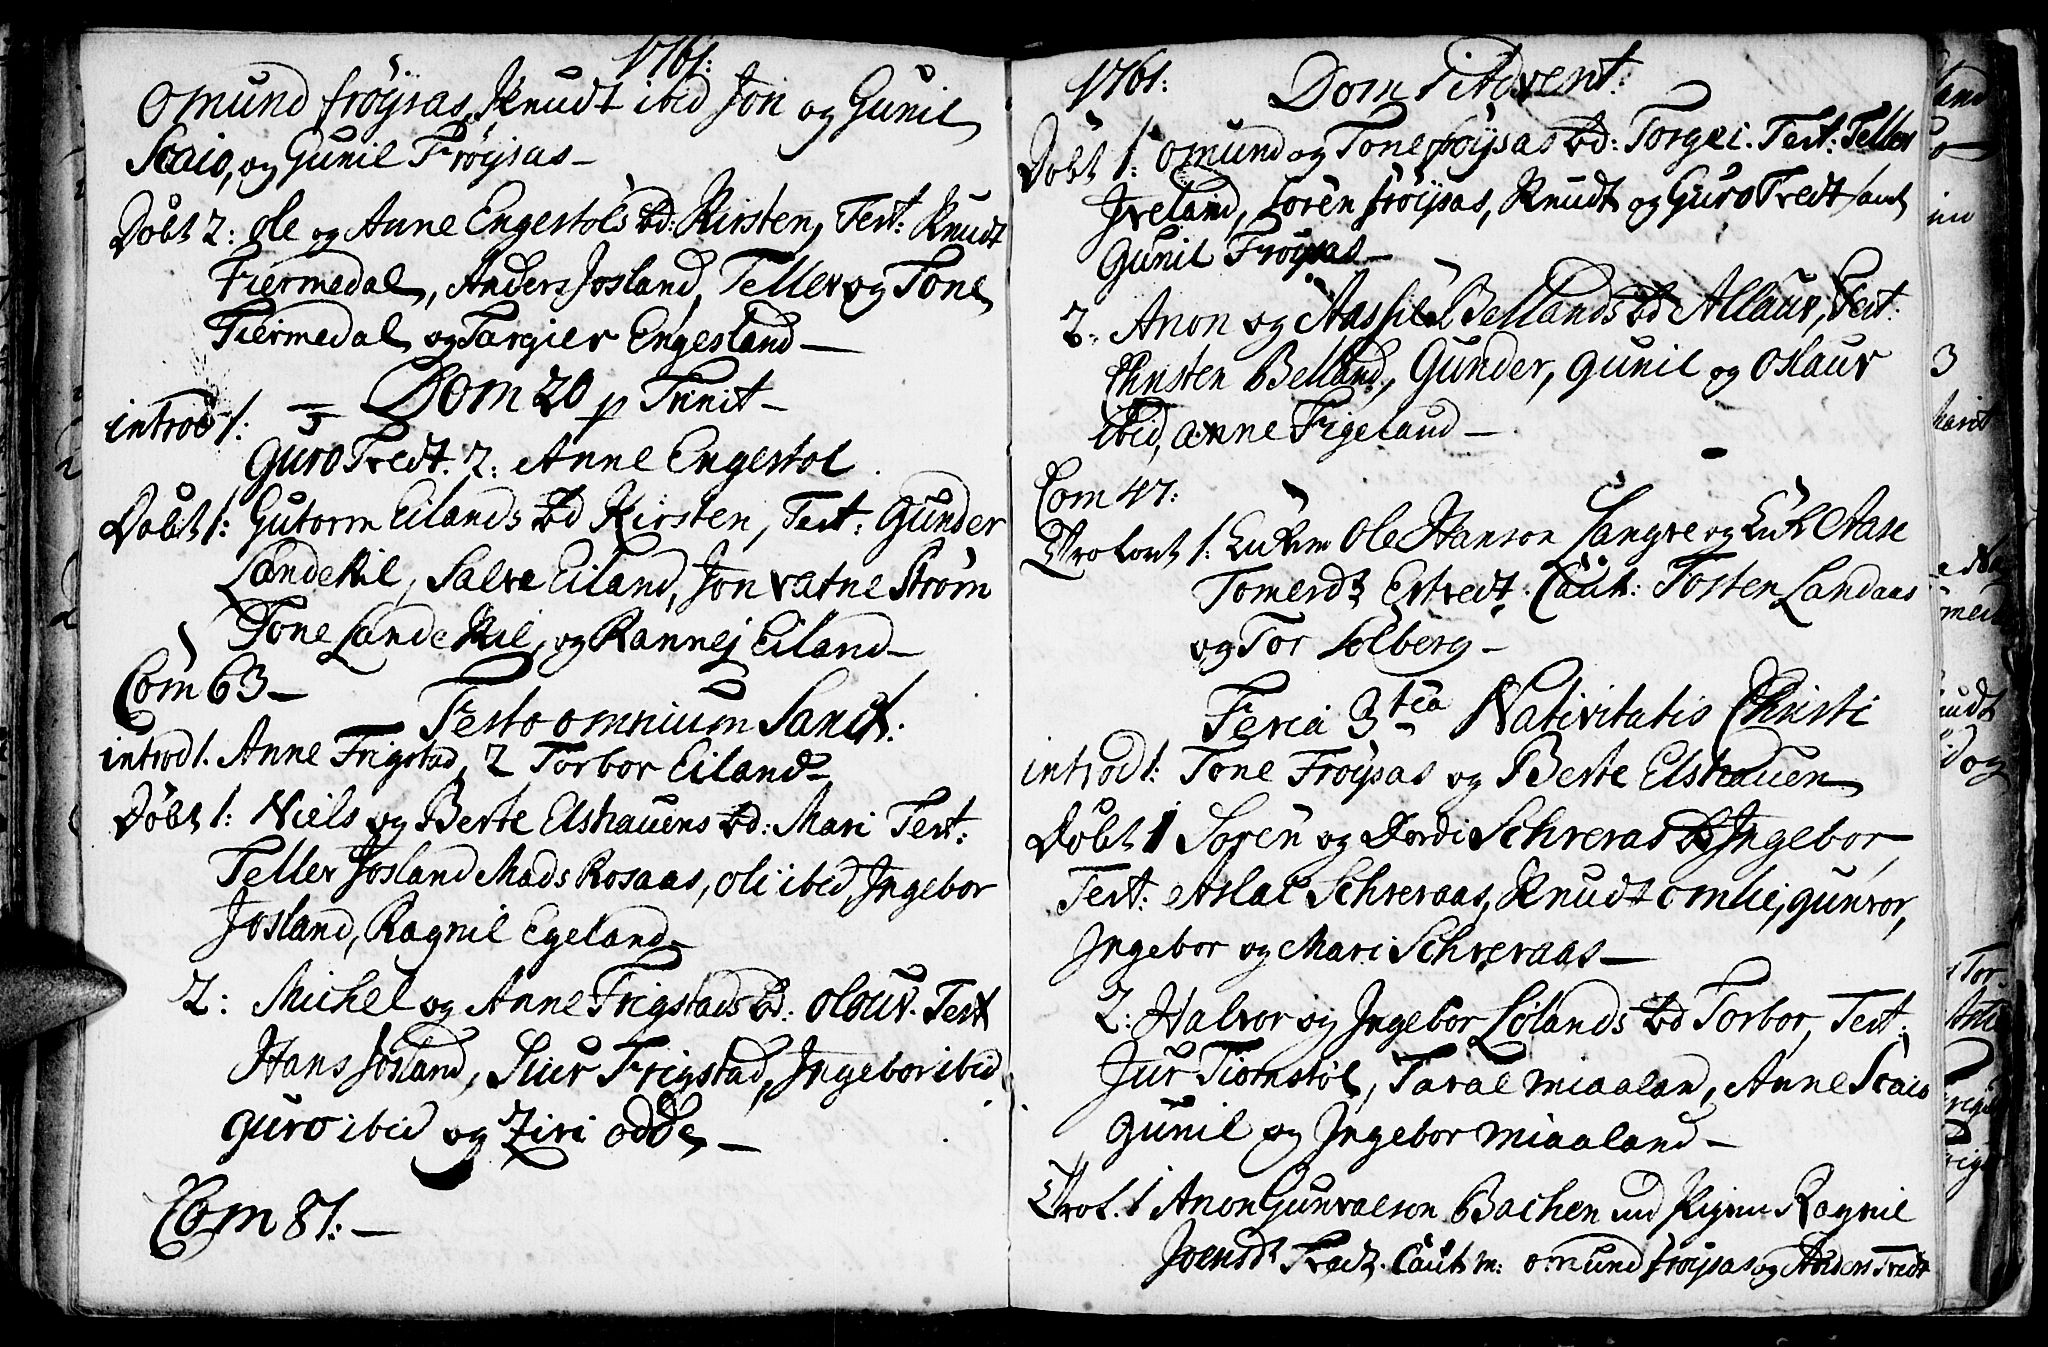 1761:
Omund Frøysas, Knudt ibid Jon og Gunil
Scaio, og Gunil Frøysas —
Døbt 2: Ole og Anne Engestøls bd: Kirsten, Test: Knudt
Fiermedal, Anders Josland, Teller og Tone
Fiermedal og Targier Engesland —
Dom 20 p Trinit —
introd 1:
Guro Tredt. 2: Anne Engestøl
Døbt 1: Gutorm Eilands bd Kirsten, Test: Gunder
Landekil, Salve Eiland, Jon vatne Strøm
Tone Landekil, og Rannej Eiland —
Com 63 —
Festo omnium Sanct:
introd 1. Anne Frigstad, 2 Torbor Eiland —
Døbt 1: Niels og Berte Elshauens bd: Mari Test:
Teller Josland Mads Rosaas, Oli ibid, Ingebor
Josland, Ragnil Egeland —
2: Michel og Anne Frigstads bd: Olouv. Test
Hans Josland, Siur Frigstad, Ingebor ibid
Guro ibid og Ziri Odde —
Com 81: —
1761: Dom 1 Advent:
Døbt 1: Omund og Tone Frøysas bd: Torgei. Test: Teller
Iveland, Søren Frøysas, Knudt og Guro Tredt samt
Gunil Frøysas —
2: Anon og Aassiel Bellands bd Allaur, Test:
Christen Belland, Gunder, Gunil og Oslaur
ibid, Anne Frigeland —
Com 47:
Trolovt 1: Ole Hanson Langve og Aase
Tomesd: Ertvedt. Caut: Tosten Landaas
og Tor Solberg —
Feria 3tia Nativitatis Christi
introd 1: Tone Frøysas og Berte Elshauen
Døbt 1 Søren og Dordi Schreras bd Ingebor,
Test: Aslac Schreraas, Knudt Omlie, Gunvor,
Ingebor og Mari Schreraas —
2: Halvor og Ingebor Lølands bd Torbor, Test:
Jur Tiomstøl, Taral Miaaland, Anne Scaio
Gunil og Ingebor Miaaland —
Trol. 1 Anon Gunvalson Bachen Ragnil
Joensdt Tredt. Caut: Omund Frøysas og Anders Tredt